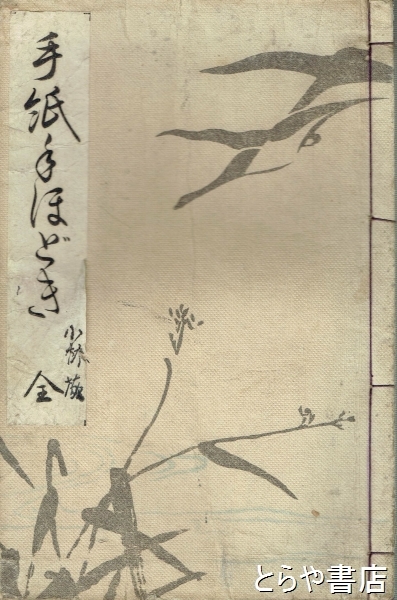 手紙手ほどき
全
小林
とらや書店